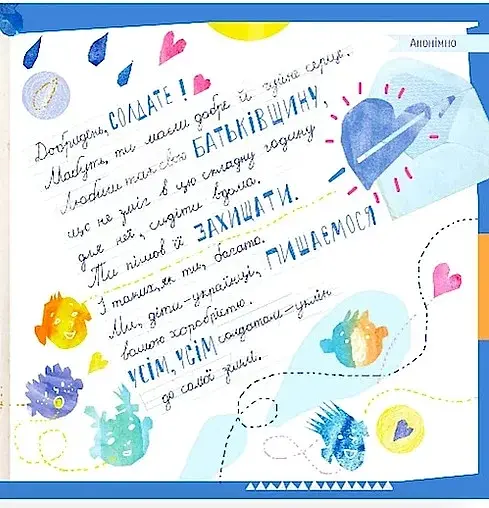 Анонімно
Добридень, СОЛДАТЕ!
Мабуть, ти маєш добре й чуйне серце.
Любиш так свою БАТЬКІВЩИНУ,
що не зміг в цю складну годину
для неї, сидіти вдома.
Ти пішов її ЗАХИЩАТИ.
І таких, як ти, багато.
Ми, діти-українці, ПИШАЄМОСЯ
вашою хоробрістю.
УСІМ, УСІМ солдатам-уклін
до самої землі.